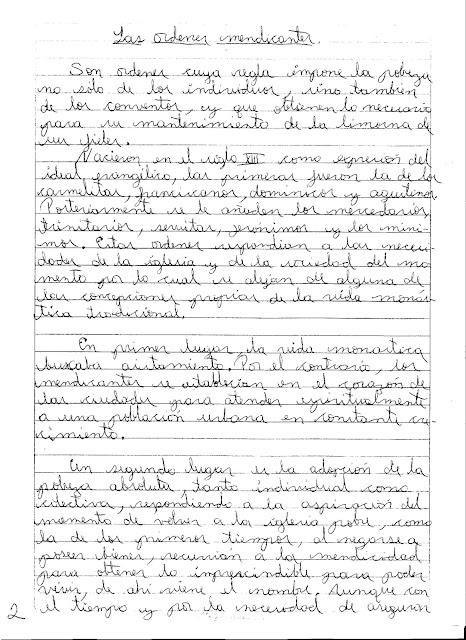 Las ordenes mendicantes.
Son ordenes cuya regla impone la pobreza
no sólo de los individuos, sino también
de los conventos, y que obtienen lo necesario
para su mantenimiento de la limosna de
sus fieles.
Nacieron en el siglo XIII como expresión del
ideal evangélico, las primeras fueron la de los
carmelitas, franciscanos, dominicos y agustinos.
Posteriormente se le añaden los mercedarios,
trinitarios, servitas, jerónimos y los míni-
mos. Estas ordenes respondían a las necesi-
dades de la iglesia y de la sociedad del mo-
mento por lo cual se alejan de alguna de
las concepciones propias de la vida monás-
tica tradicional.
En primer lugar, la vida monastica
buscaba aislamiento. Por el contrario, los
mendicantes se establecían en el corazón de
las ciudades para atender espiritualmente
a una población urbana en constante cre-
cimiento.
En segundo lugar es la adopción de la
pobreza absoluta, tanto individual como
colectiva, respondiendo a la aspiración del
momento de volver a la iglesia pobre, como
la de los primeros tiempos, al negarse a
poseer bienes, recurrían a la mendicidad
para obtener lo imprescindible para poder
vivir, de ahí viene el nombre. Aunque con
el tiempo y por la necesidad de asegurar
2